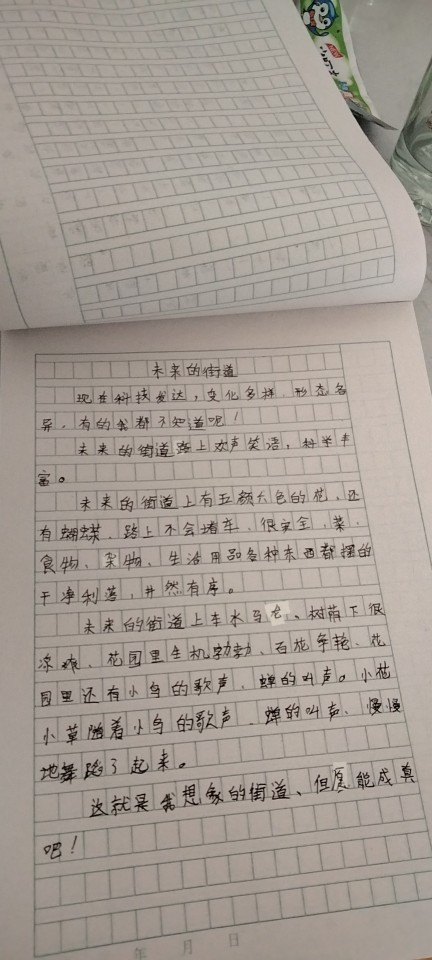 未来的街道
现在科技发达，变化多样、形态各
异，有的我都不知道呢！
未来的街道路上欢声笑语，科学丰
富。
未来的街道上有五颜六色的花，还
有蝴蝶、路上不会堵车、很安全，菜、
食物、杂物、生活用品各种东西都摆的
干净利落，井然有序。
未来的街道上车水马龙、树荫下很
凉爽、花园里生机勃勃、百花争艳、花
园里还有小鸟的歌声、蝉的叫声。小花
小草随着小鸟的歌声、蝉的叫声、慢慢
地舞蹈了起来。
这就是我想象的街道、但愿能成真
吧！
年 月 日